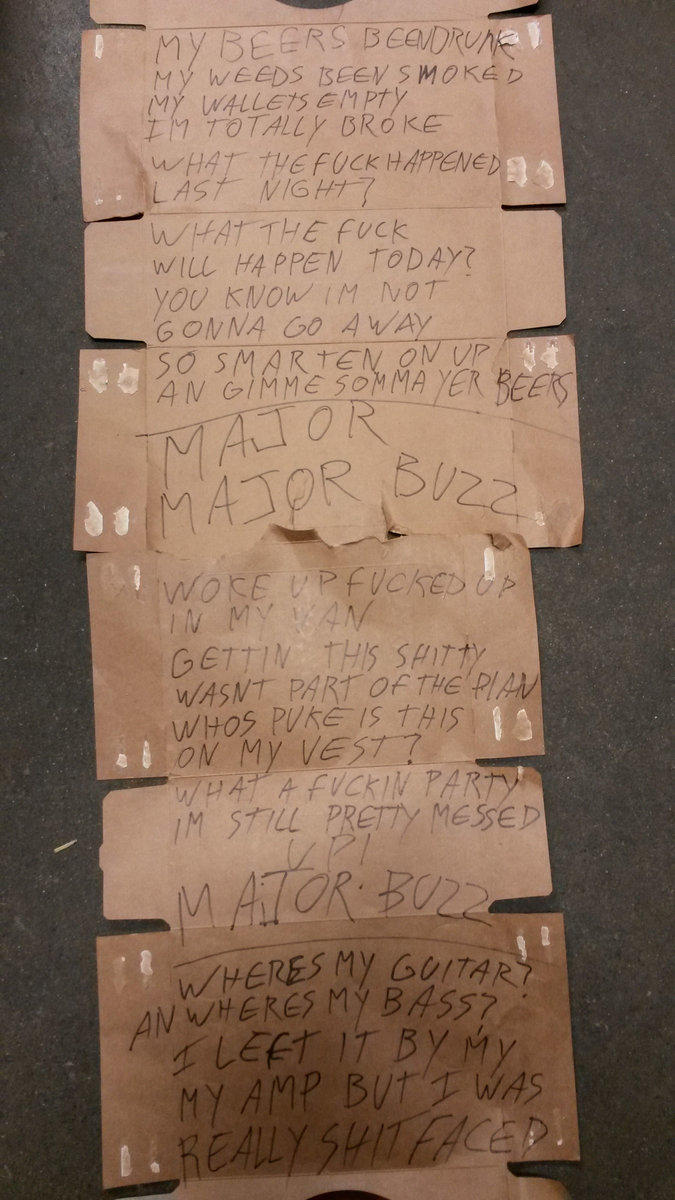 MY BEERS BEENDRUNK
MY WEEDS BEEN SMOKED
MY WALLETS EMPTY
IM TOTALLY BROKE
WHAT THE FUCK HAPPENED
LAST NIGHT?
WHAT THE FUCK
WILL HAPPEN TODAY?
YOU KNOW IM NOT
GONNA GO AWAY
SO SMARTEN ON UP
AN GIMME SOMMA YER BEERS
MAJOR
MAJOR BUZZ
WOKE UP FUCKED UP
IN MY VAN
GETTIN THIS SHITTY
WASNT PART OF THE PLAN
WHOS PUKE IS THIS
ON MY VEST?
WHAT A FUCKIN PARTY
IM STILL PRETTY MESSED
UP!
MAJOR BUZZ
WHERES MY GUITAR?
AN WHERES MY BASS?
I LEFT IT BY MY
MY AMP BUT I WAS
REALLY SHITFACED